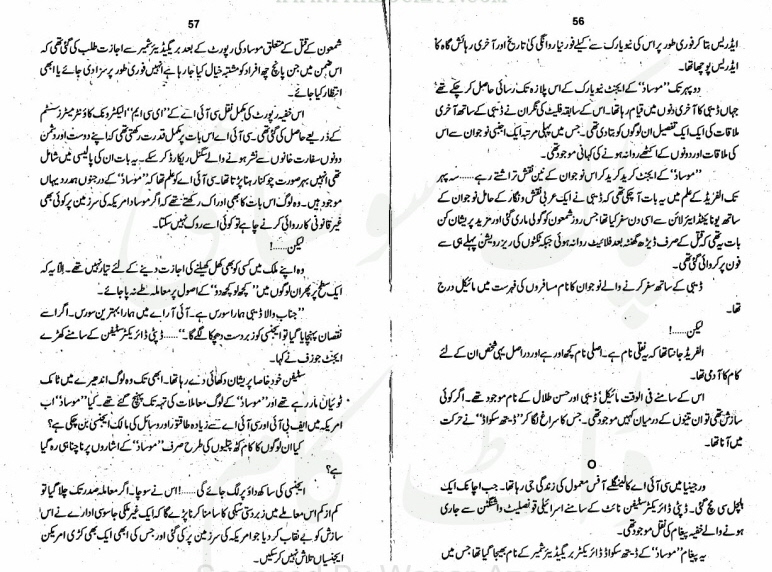 56
ایڈریس بتا کر فوری طور پر اس کی نیویارک سے کیلئے فورنیا روانگی کی تاریخ اور آخری رہائش گاہ کا
ایڈریس پوچھا تھا۔
دوپہر تک ”موساد“ کے ایجنٹ نیویارک کے اس پلازہ تک رسائی حاصل کر چکے تھے
جہاں ڈیبی کا آخری دنوں میں قیام رہا تھا۔ اس کے سابقہ فلیٹ کی نگران نے ڈیبی کے ساتھ آخری
ملاقات کی ایک ایک تفصیل ان لوگوں کو بتا دی تھی۔ جس میں پہلی مرتبہ ایک اجنبی نوجوان سے اس
کی ملاقات اور دونوں کے اکٹھے روانہ ہونے کی کہانی موجود تھی۔
”موساد“ کے ایجنٹ کرید کرید کر اس نوجوان کے نین نقش تراشتے رہے...... سہ پہر
تک الفریڈ کے علم میں یہ بات آ چکی تھی کہ ڈیبی نے ایک عربی نقش و نگار کے حامل نوجوان کے
ساتھ یونائیٹڈ ایئر لائن سے اسی دن سفر کیا تھا جس روز شمعون کو گولی ماری گئی اور مزید پریشان کن
بات یہ تھی کہ قتل کے صرف ڈیڑھ گھنٹہ بعد فلائیٹ روانہ ہوئی جبکہ ٹکٹوں کی ریزرویشن پہلی ہی سے
فون پر کروائی گئی تھی۔
ڈیبی کے ساتھ سفر کرنے والے نوجوان کا نام مسافروں کی فہرست میں مائیکل درج
تھا۔
لیکن......!
الفریڈ جانتا تھا کہ یہ نقلی نام ہے۔ اصلی نام کچھ اور ہے اور دراصل یہی شخص ان کے لئے
کام کا آدمی تھا۔
اس کے سامنے فی الوقت مائیکل ڈیبی اور حسن طلال کے نام موجود تھے۔ اگر کوئی
سازش تھی تو ان تینوں کے درمیان کہیں موجود تھی۔ جس کا سراغ لگا کر ”ڈیتھ سکواڈ“ نے حرکت
میں آنا تھا۔
O
ورجینیا میں سی آئی اے کا لینگلے آفس معمول کی زندگی جی رہا تھا۔ جب اچانک ایک
ہلچل سی مچ گئی۔ ڈپٹی ڈائریکٹر سٹیفن نائٹ کے سامنے اسرائیلی قونصلیٹ واشنگٹن سے جاری
ہونے والے خفیہ پیغام کی نقل موجود تھی۔
یہ پیغام ”موساد“ کے ڈیتھ سکواڈ ڈائریکٹر بریگیڈیئر شمیر کے نام بھیجا گیا تھا جس میں
57
شمعون کے قتل کے متعلق موساد کی رپورٹ کے بعد بریگیڈیئر شمیر سے اجازت طلب کی گئی تھی کہ
اس ضمن میں جن پانچ چھ افراد کو مشتبہ خیال کیا جا رہا ہے انہیں فوری طور پر سزا دی جائے یا ابھی
انتظار کیا جائے۔
اس خفیہ رپورٹ کی مکمل نقل سی آئی اے کے ”ای سی ایم“ الیکٹرونک کاؤنٹر میٹرز سسٹم
کے ذریعے حاصل کی گئی تھی۔ سی آئی اے اس بات پر مکمل قدرت رکھتی تھی کہ اپنے دوست اور دشمن
دونوں سفارت خانوں سے نشر ہونے والے سگنل ریکارڈ کر سکے۔ یہ بات ان کی پالیسی میں شامل
تھی انہیں بہر صورت چوکنا رہنا پڑتا تھا۔ سی آئی اے کو علم تھا کہ ”موساد“ کے درجنوں ہمدرد یہاں
موجود ہیں۔ وہ لوگ اس بات کا بھی ادراک رکھتے تھے کہ اگر موساد امریکہ کی سرزمین پر کوئی بھی
غیر قانونی کارروائی کرنے چاہے تو کوئی اسے روک نہیں سکتا۔
لیکن......!
وہ اپنے ملک میں کسی کو بھی کھل کھیلنے کی اجازت دینے کے لئے تیار نہیں تھے۔ الا یہ کہ
ایک سطح پر پھر ان لوگوں میں ”کچھ لو کچھ دو“ کے اصول پر معاملہ طے نہ پا جائے۔
”جناب والا ڈیبی ہمارا سورس ہے۔ آئی آر اے میں ہمارا بہترین سورس۔ اگر اسے
نقصان پہنچایا گیا تو ایجنسی کو زبردست دھچکا لگے گا۔“...... ڈپٹی ڈائریکٹر سٹیفن کے سامنے کھڑے
ایجنٹ جوزف نے کہا۔
سٹیفن خود خاصا پریشان دکھائی دے رہا تھا۔ ابھی تک وہ لوگ اندھیرے میں ٹامک
ٹوئیاں مار رہے تھے اور ”موساد“ کے لوگ معاملات کی تہہ تک پہنچ گئے تھے۔ کیا ”موساد“ اب
امریکہ میں ایف بی آئی اور سی آئی اے سے زیادہ طاقتور اور وسائل کی مالک ایجنسی بن چکی ہے؟
کیا ان لوگوں کا کام کٹھ پتلیوں کی طرح صرف ”موساد“ کے اشاروں پر ناچنا ہی رہ گیا
ہے؟
ایجنسی کی ساکھ داؤ پر لگ جائے گی......! اس نے سوچا۔ اگر معاملہ صدر تک چلا گیا تو
کم از کم اس معاملے میں زبردستی سبکی کا سامنا کرنا پڑے گا کہ ایک غیر ملکی جاسوسی ادارے نے اس
سازش کو بے نقاب کر دیا جو امریکہ کی سرزمین پر کی گئی اور جس کی ابھی ایک بھی کڑی امریکن
ایجنسیاں تلاش نہیں کر سکیں۔